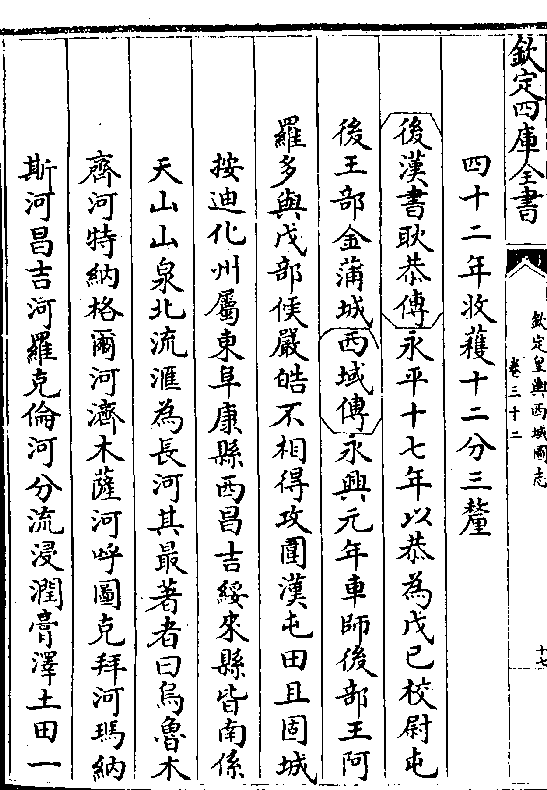 欽定四庫全書
欽定皇輿西域圖志
卷三十二
十七
四十二年收穫十二分三釐
後漢書耿恭傳永平十七年以恭為戊己校尉屯
後王部金蒲城西域傳永興元年車師後部王阿
羅多與戊部侯嚴皓不相得攻圍漢屯田且固城
按迪化州屬東阜康縣西昌吉綏來縣皆南係
天山山泉北流滙為長河其最著者曰烏魯木
齊河特納格爾河濟木薩河呼圖克拜河瑪納
斯河昌吉河羅克倫河分流浸潤膏澤土田一